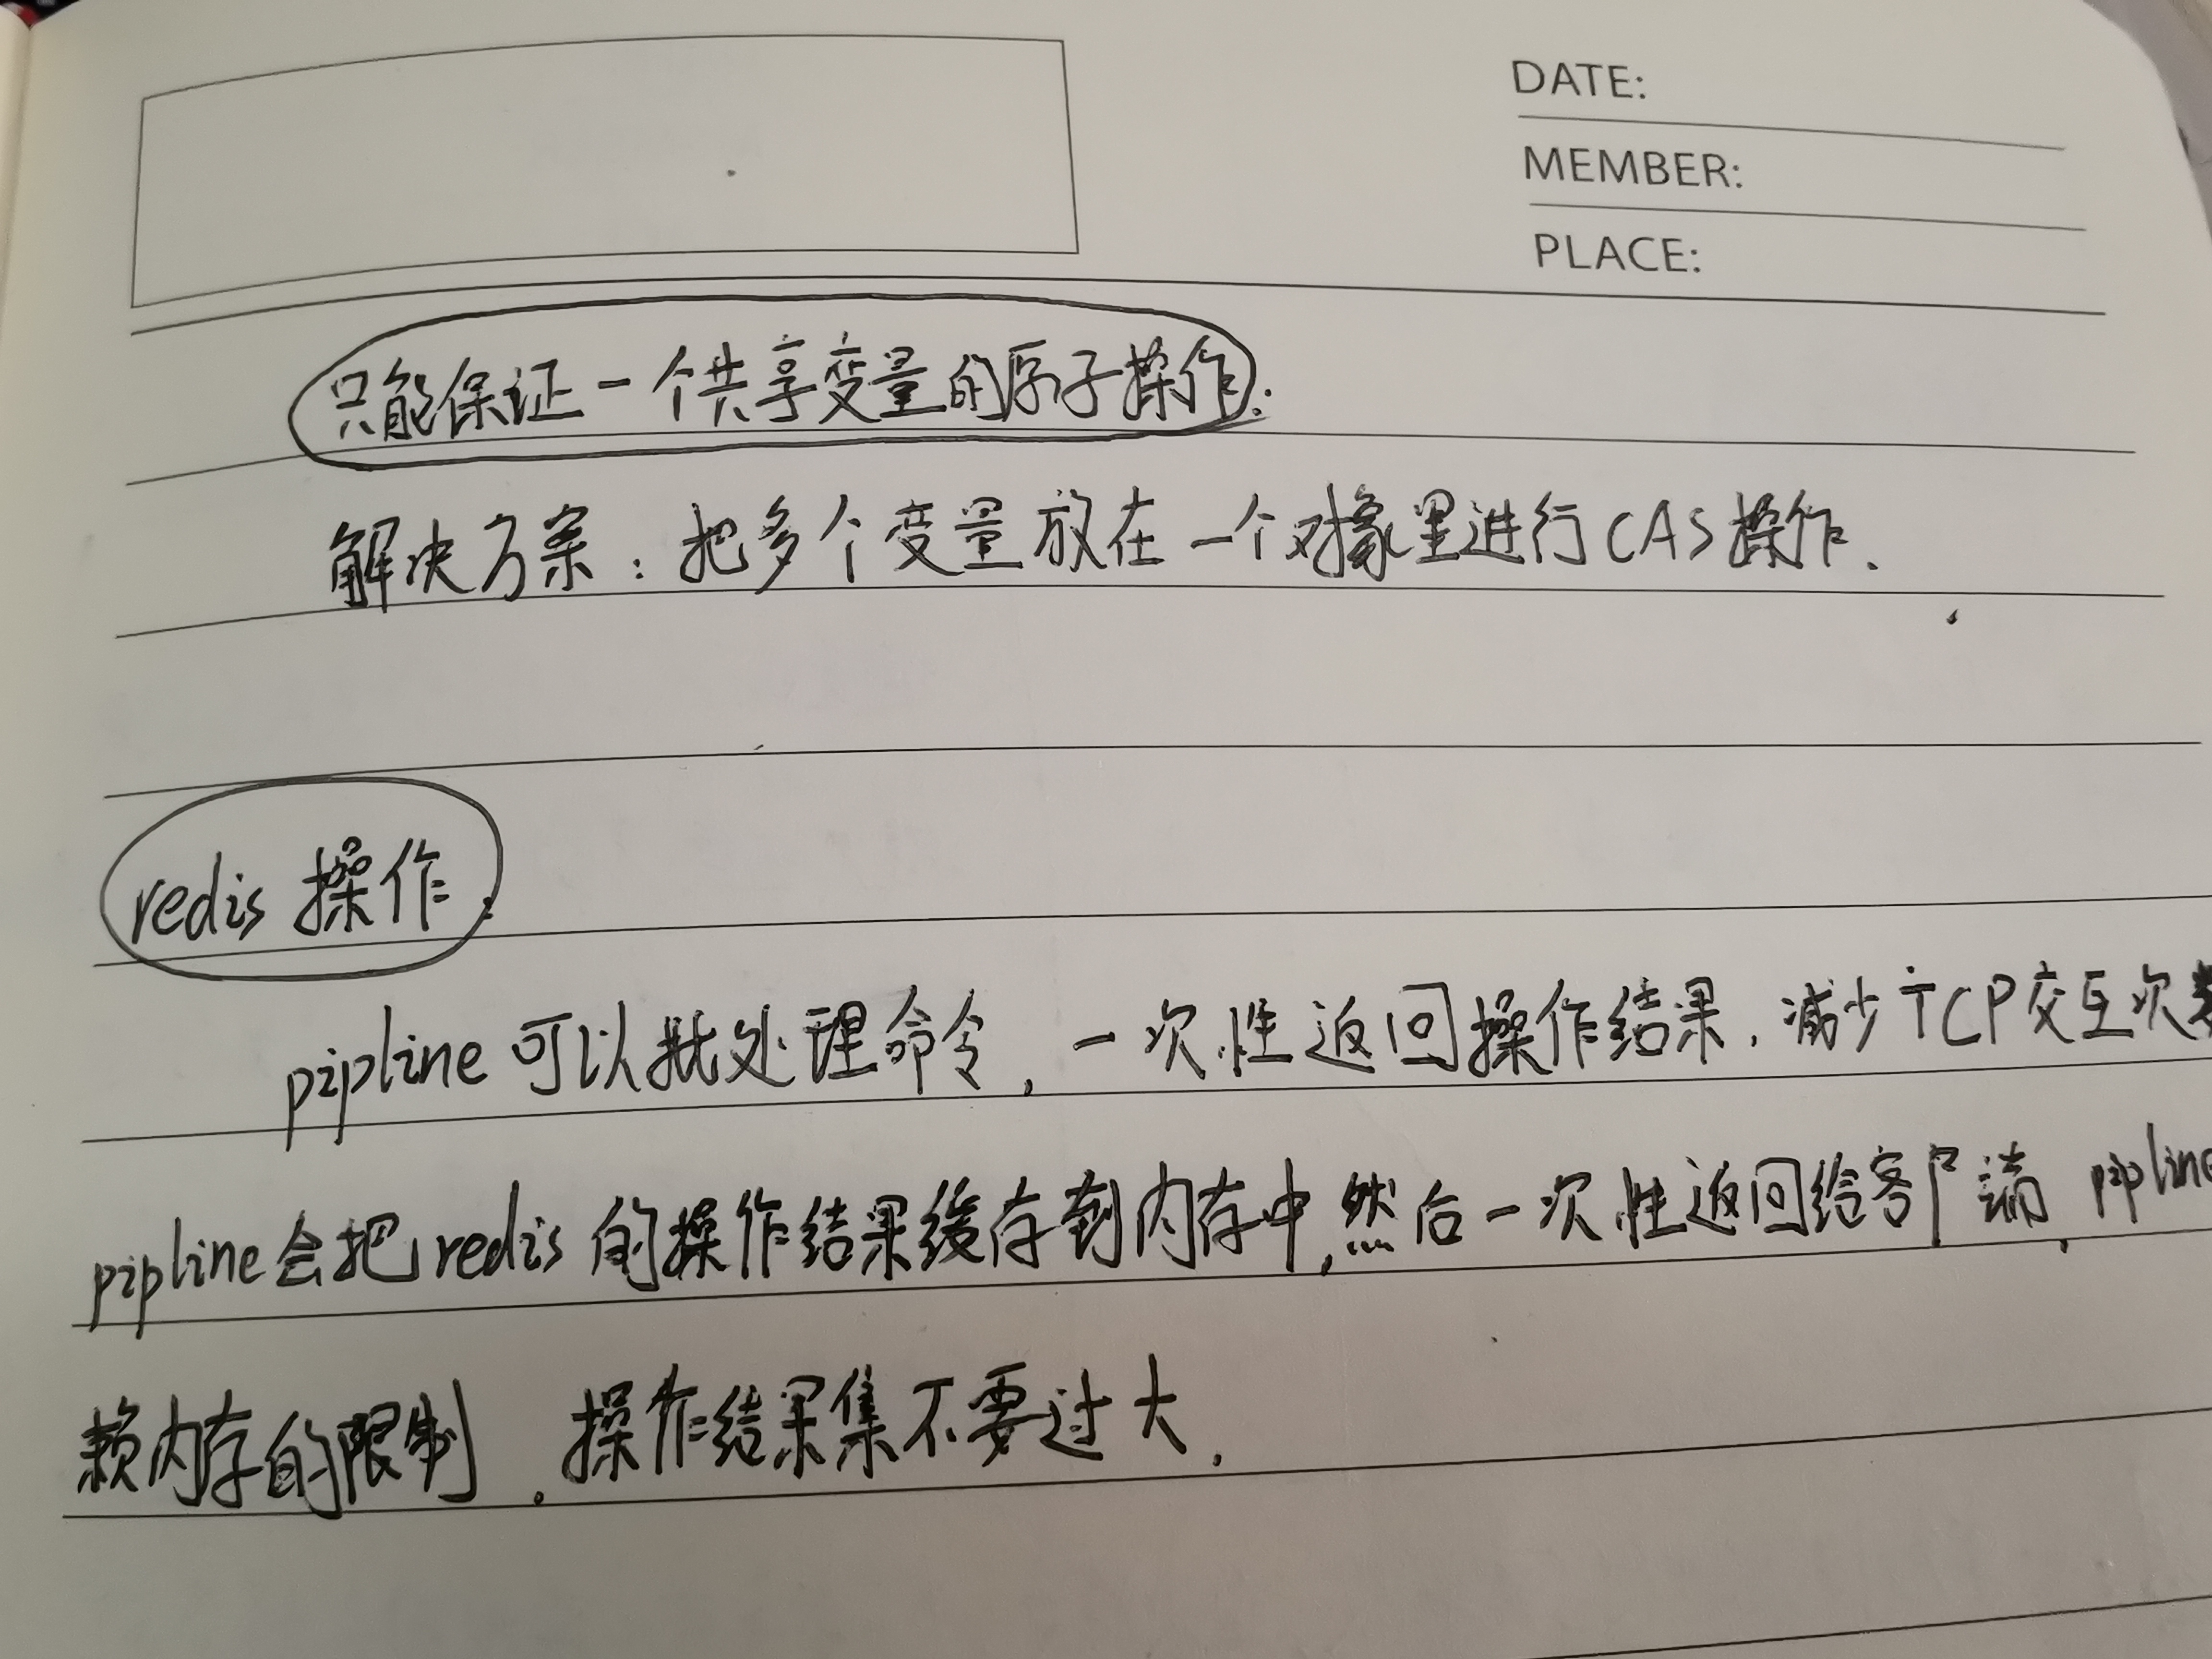 DATE:
MEMBER:
PLACE:
只能保证一个共享变量的原子操作:
解决方案:把多个变量放在一个对象里进行CAS操作.
redis 操作:
pipline 可以批处理命令,一次性返回操作结果,减少TCP交互次数
pipline会把redis的操作结果缓存到内存中,然后一次性返回给客户端,pipline
赖内存的限制.操作结果集不要过大.